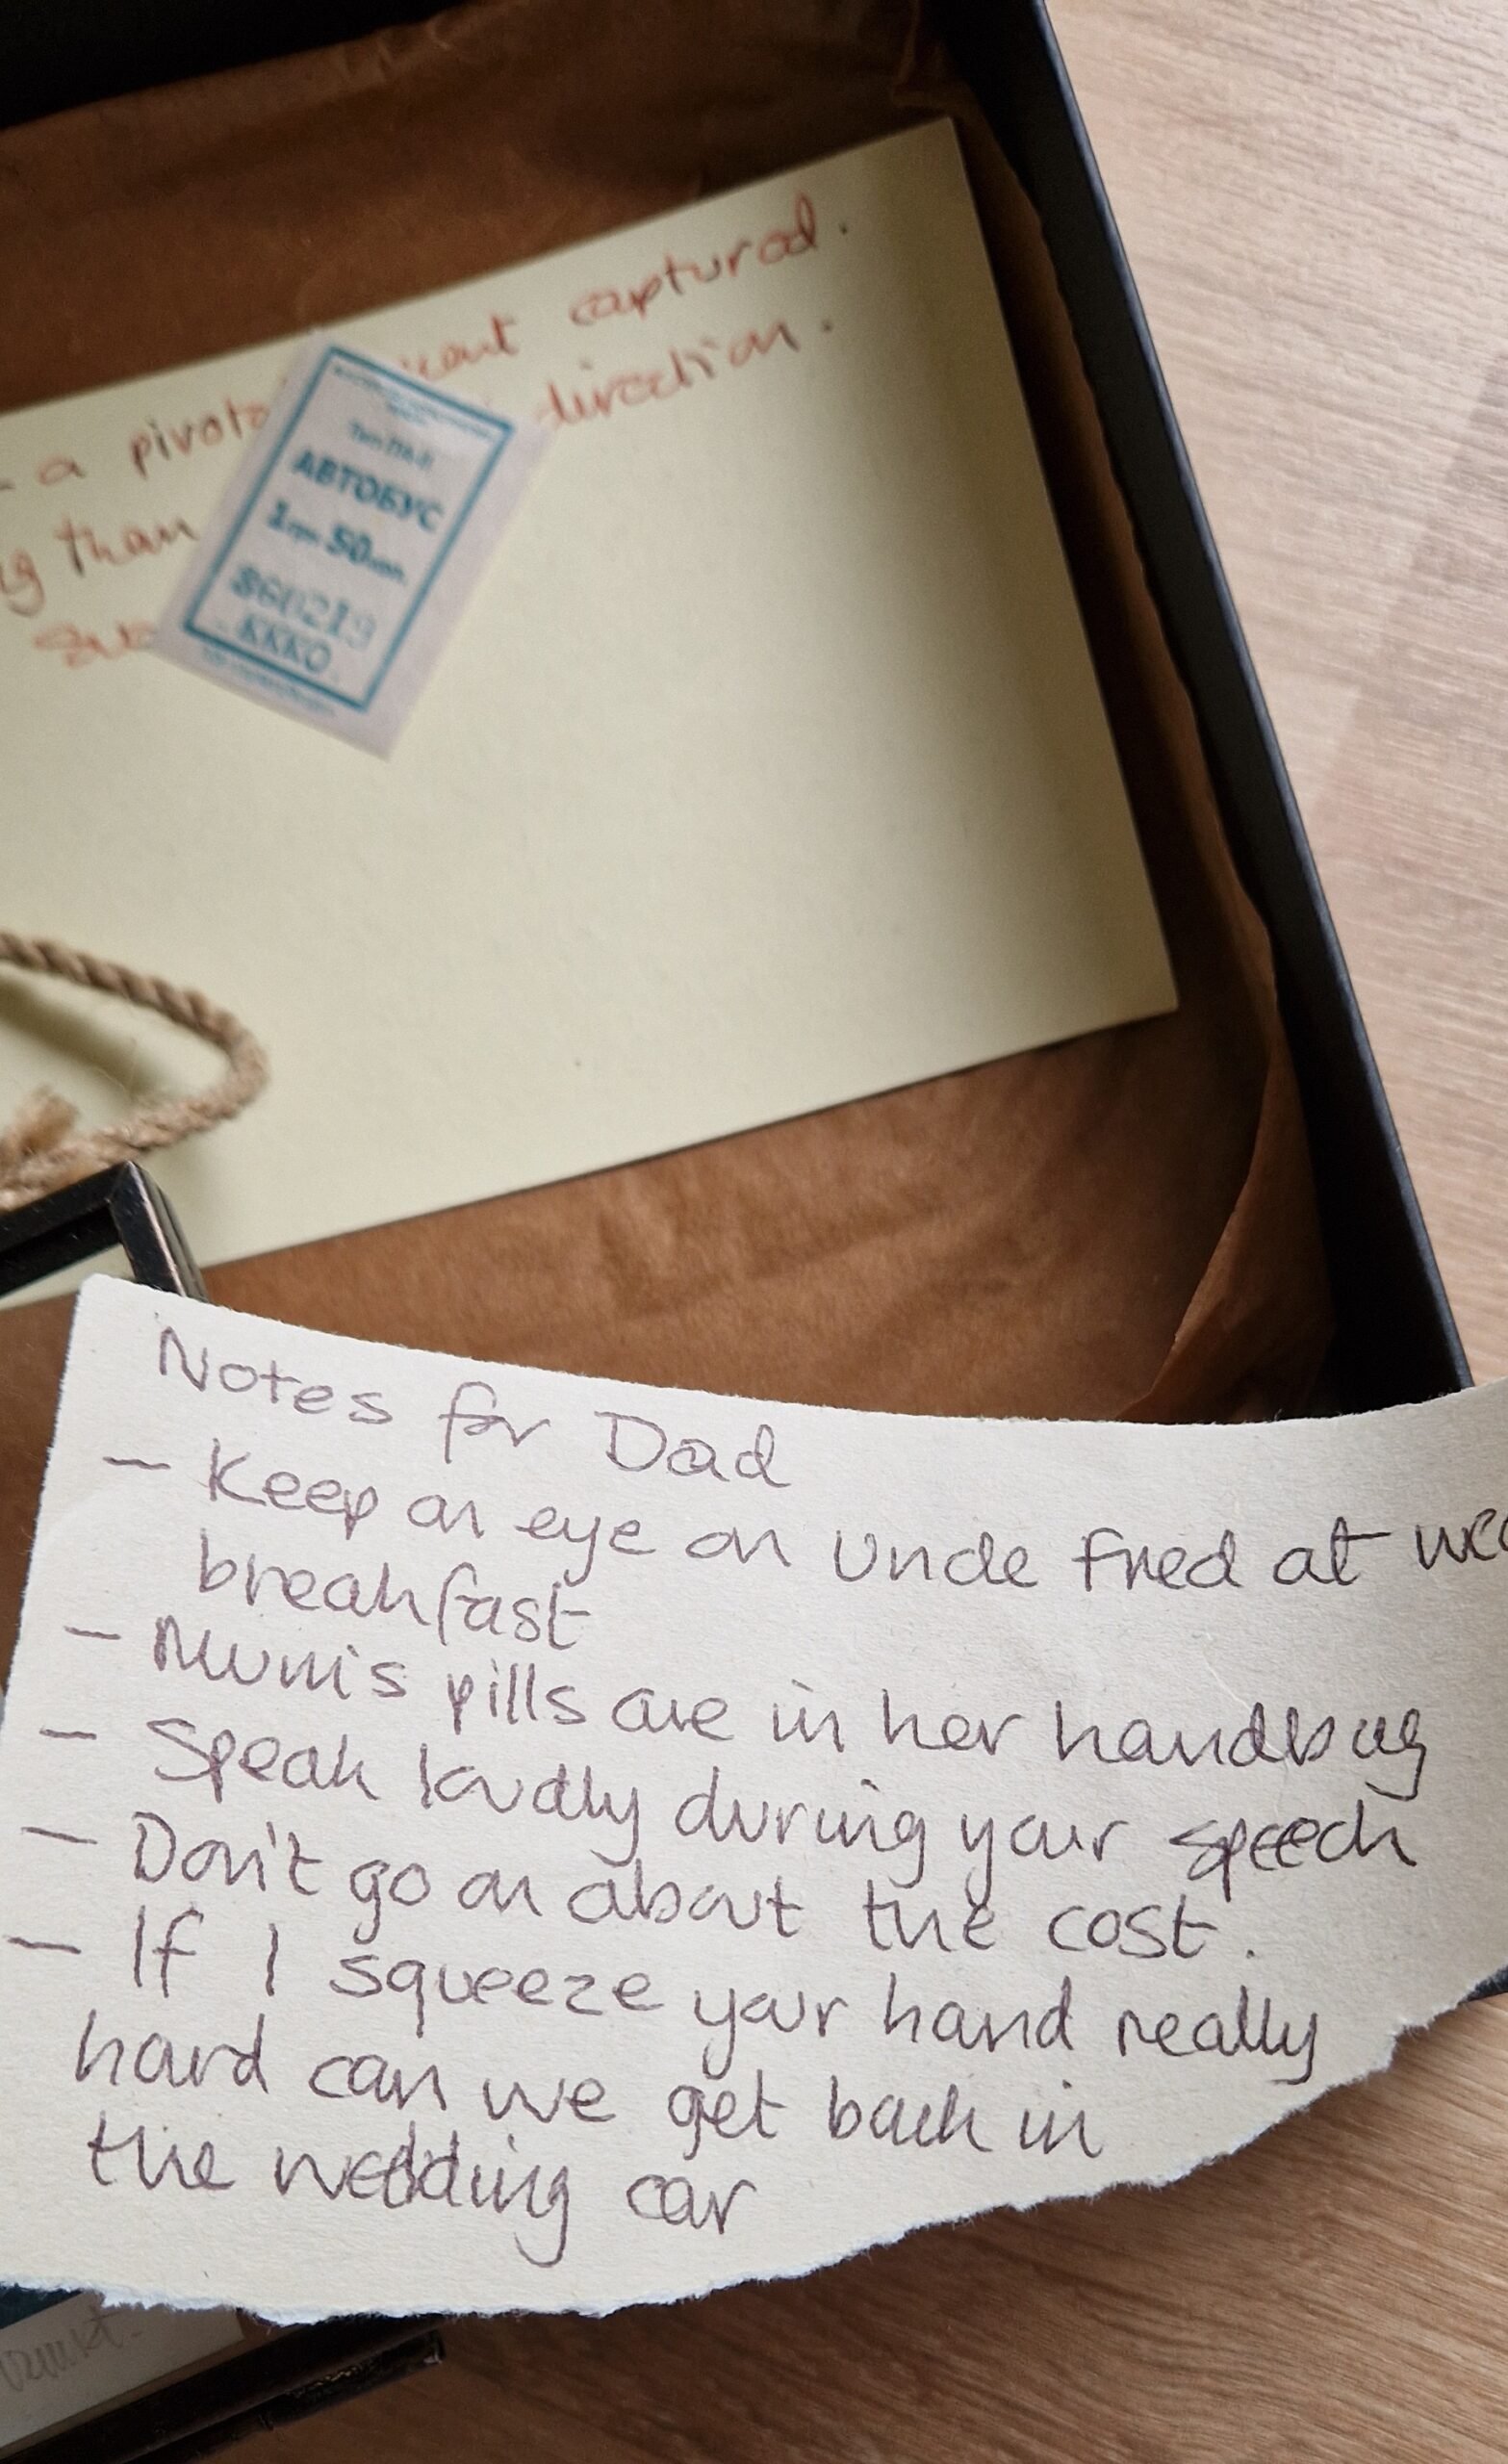 a captured.
than direction.
АВТОБУС
1 грн 50 коп.
860219
КККО
Notes for Dad
- Keep an eye on Uncle Fred at
breakfast
- Mum's pills are in her handbag
- Speak loudly during your speech
- Don't go on about the cost.
- If I squeeze your hand really
hard can we get back in
the wedding car